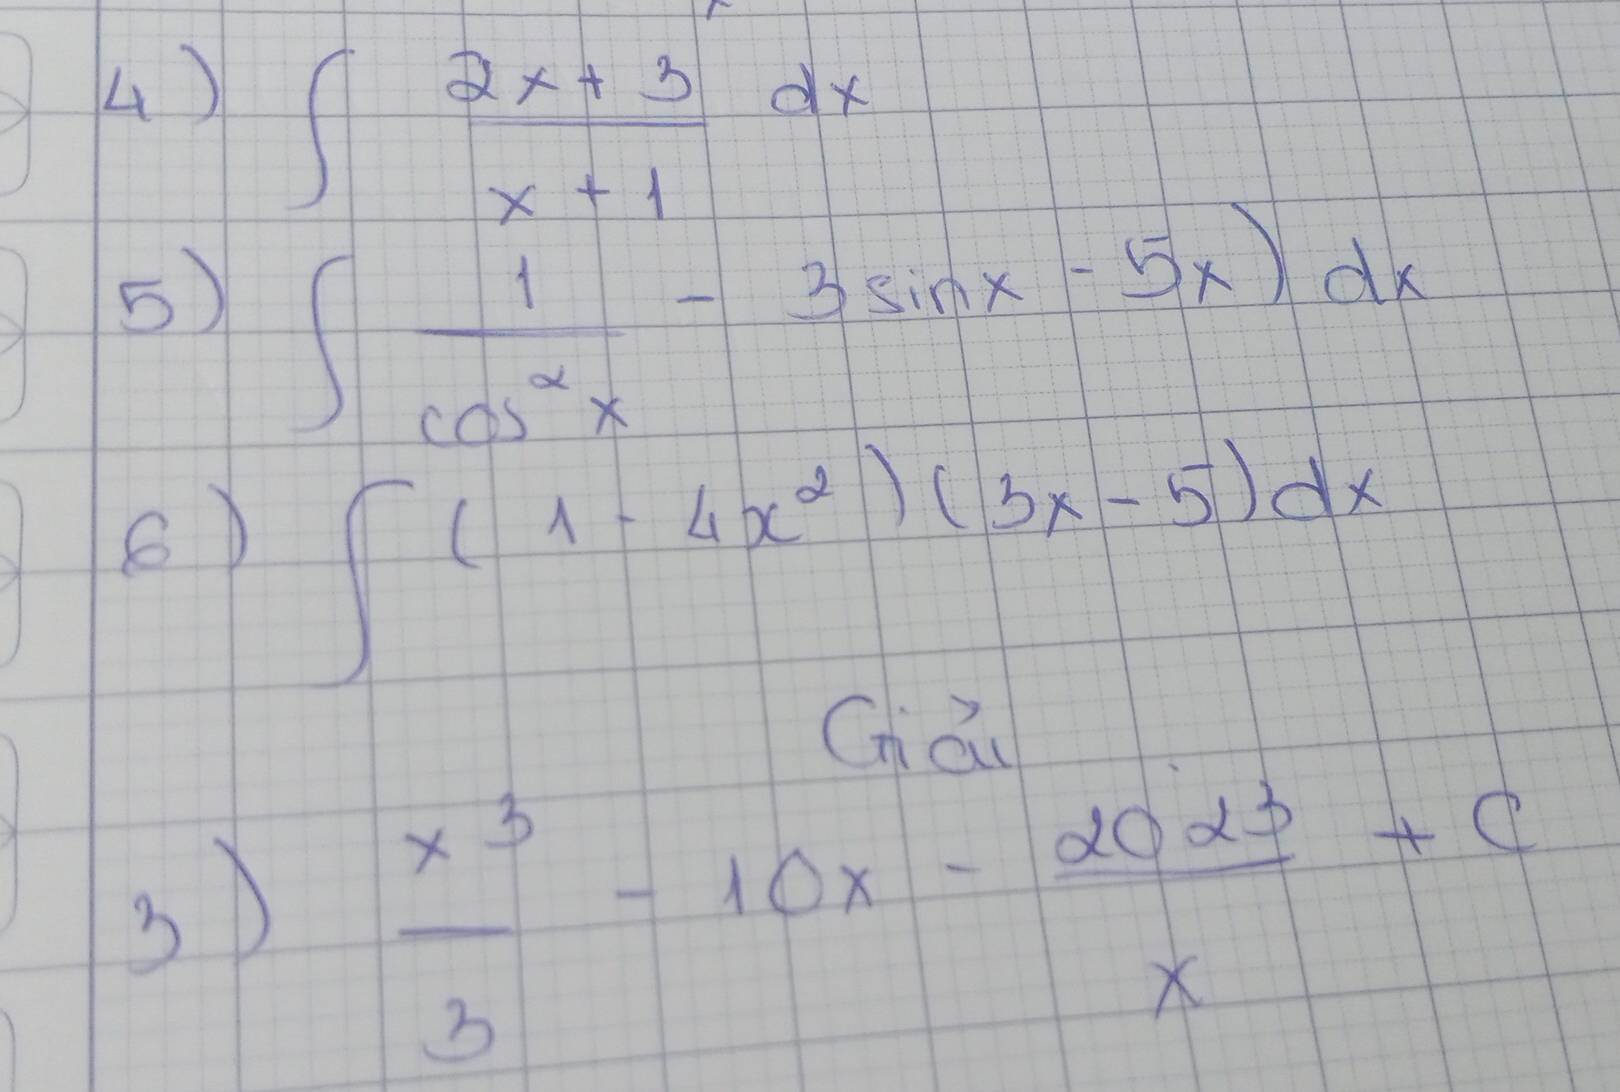 4) ∫ (2x + 3)/(x + 1) dx
5) ∫ 1/(cos²x) - 3sinx - 5x) dx
6) ∫ (1 - 4x²)(3x - 5)dx
Giải
3) x³/3 - 10x - 2023/x + C